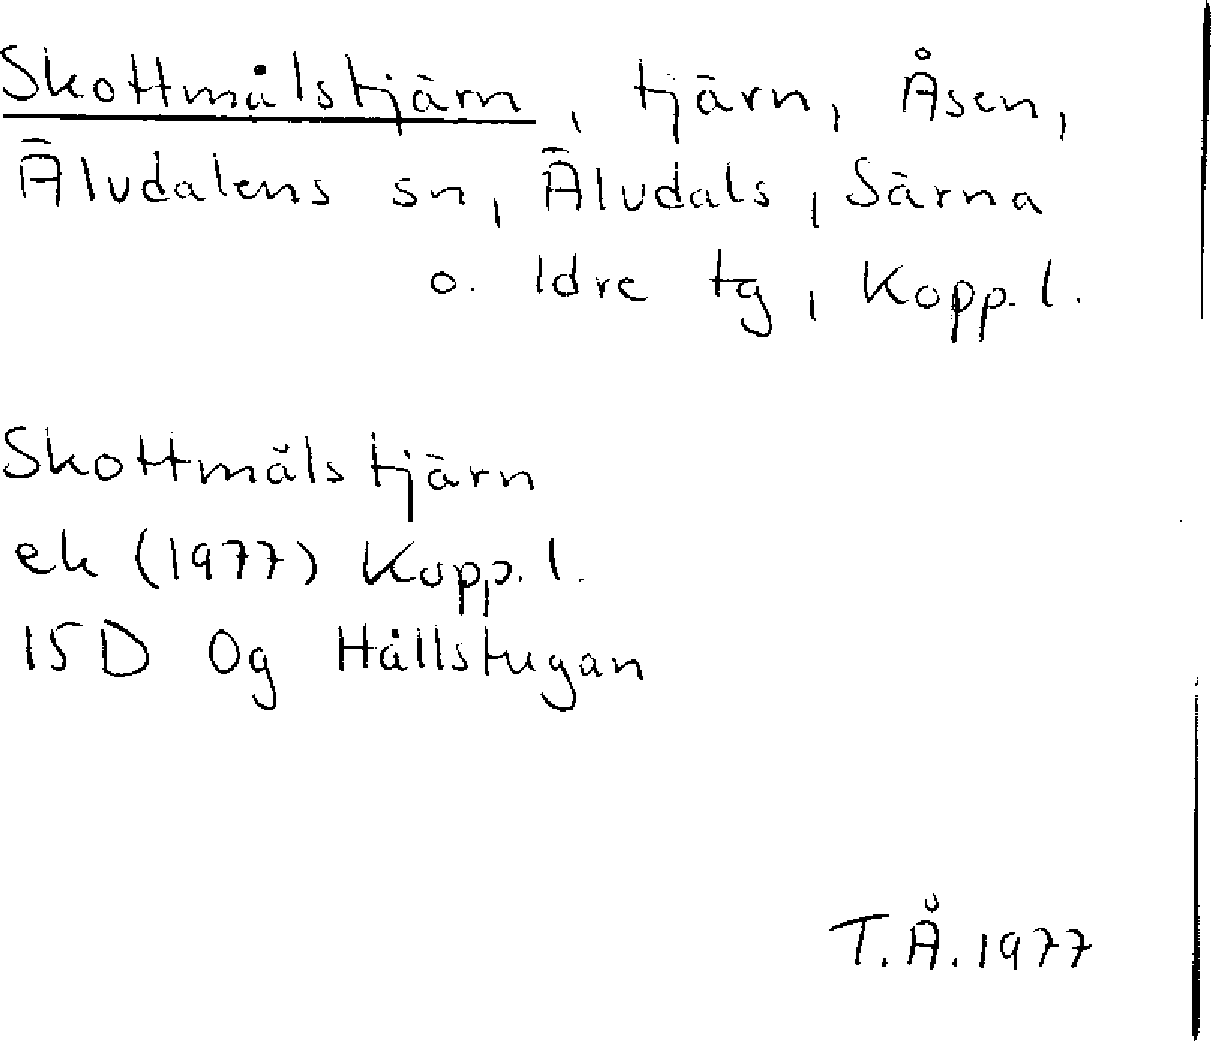 Skottmålstjärn, tjärn, Åsen,
Älvdalens sn, Älvdals, Särna
o. Idre tg, Kopp. l.
Skottmålstjärn
ek (1977) Kopp. l.
15D 0g Hållstugan
T.Å. 1977